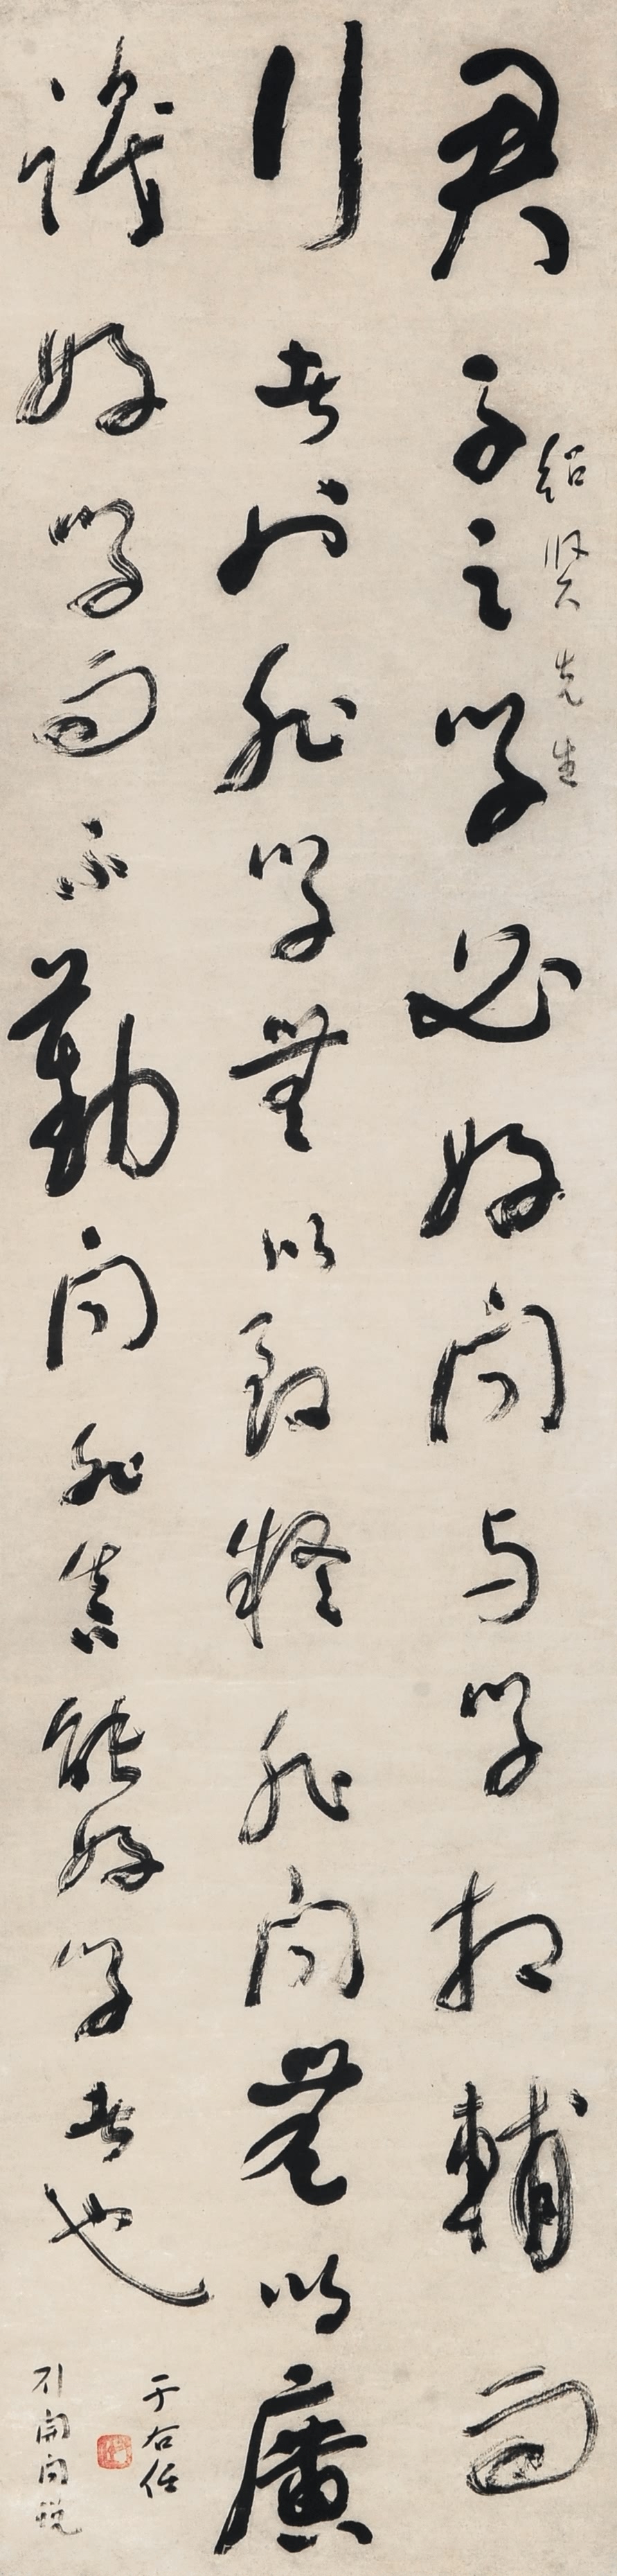 紹賢先生
君子之學必好問与學相輔而
行者也非學無以致疑非問無以廣
識好學而不勤問非真能好學者也
于右任
刘開問說